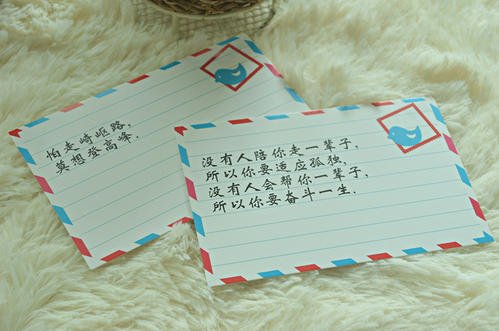 怕走崎岖路,
莫想登高峰.
没有人陪你走一辈子,
所以你要适应孤独,
没有人会帮你一辈子,
所以你要奋斗一生.